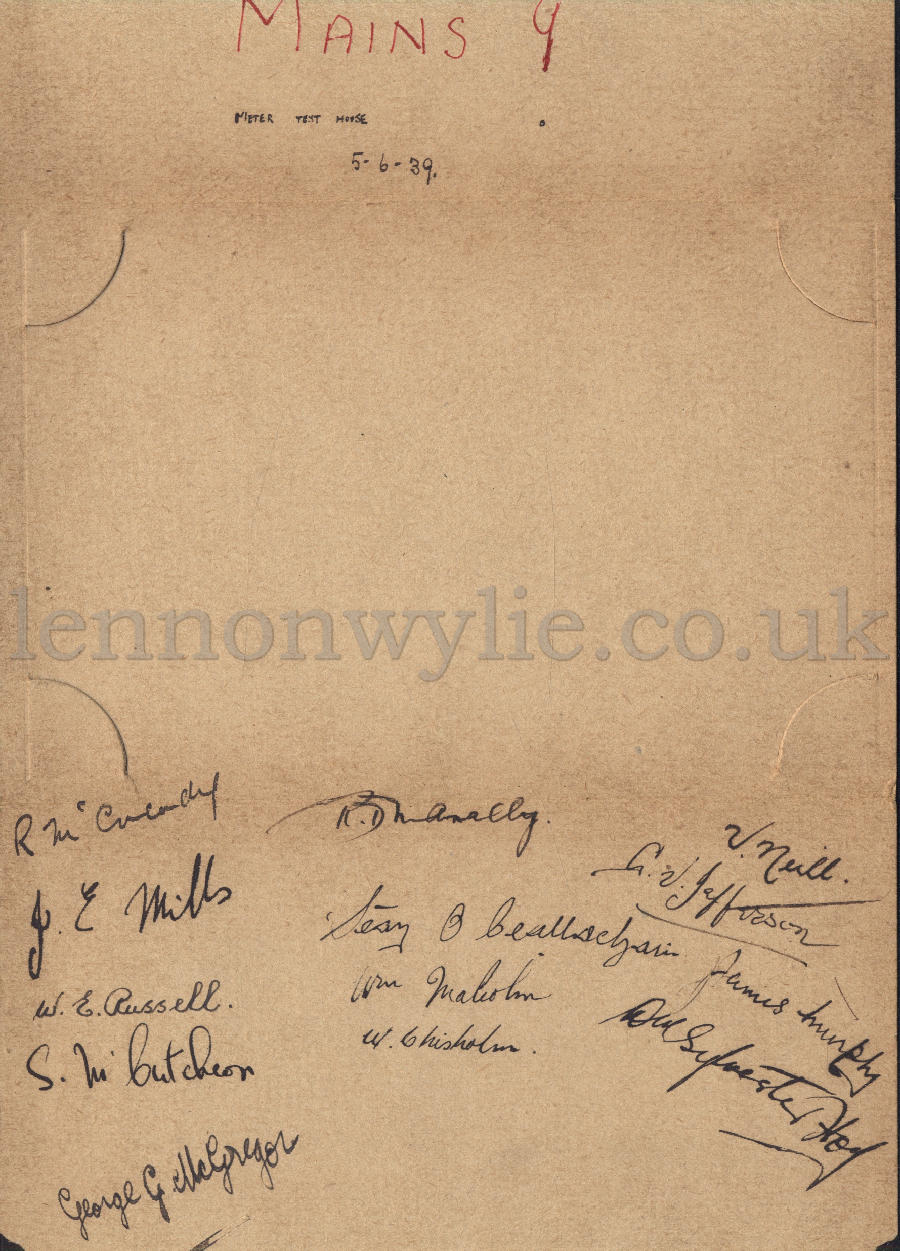 MAINS 9
METER TEST HOUSE
5-6-39.
lennonwylie.co.uk
R McCready
J. E Mills
W. E. Russell.
S. Mc Cutcheon
George G McGregor
R. D McAnally.
Seán
Wm Malcolm
W. Chisholm.
V. Neill.
G. V. Jefferson
James Murphy
Sylvester